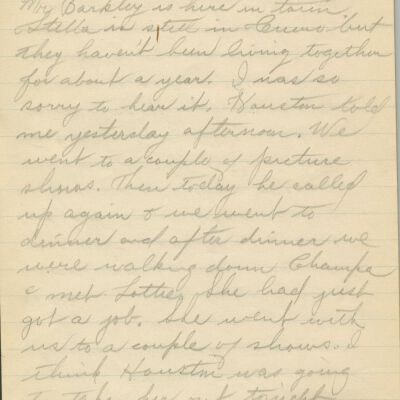 My Barkley is here in town,
Stella is still in Cuero but
they haven't been living together
for about a year. I was so
sorry to hear it. Houston told
me yesterday afternoon. We
went to a couple of picture
shows. Then today he called
up again & we went to
dinner and after dinner we
were walking down Champa
& met Lottie. She had just
got a job. She went with
us to a couple of shows. I
think Houston was going
to take her out tonight